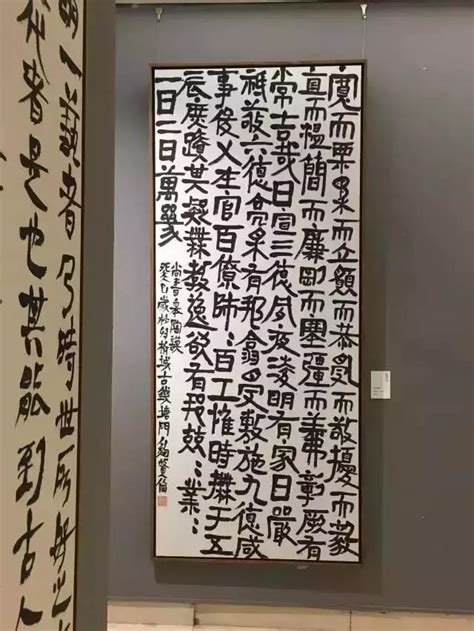 寬而栗柔而立願而恭亂而敬擾而毅
直而温簡而廉剛而塞彊而義彰厥有
常吉哉日宣三德夙夜浚明有家日嚴
祗敬六德亮采有邦翕受敷施九德咸
事俊乂在官百僚師〻百工惟時撫于五
辰庶績其凝無教逸欲有邦兢〻業〻
一日二日萬幾
尚書皋陶謨
癸巳歲
者是也其能到古人